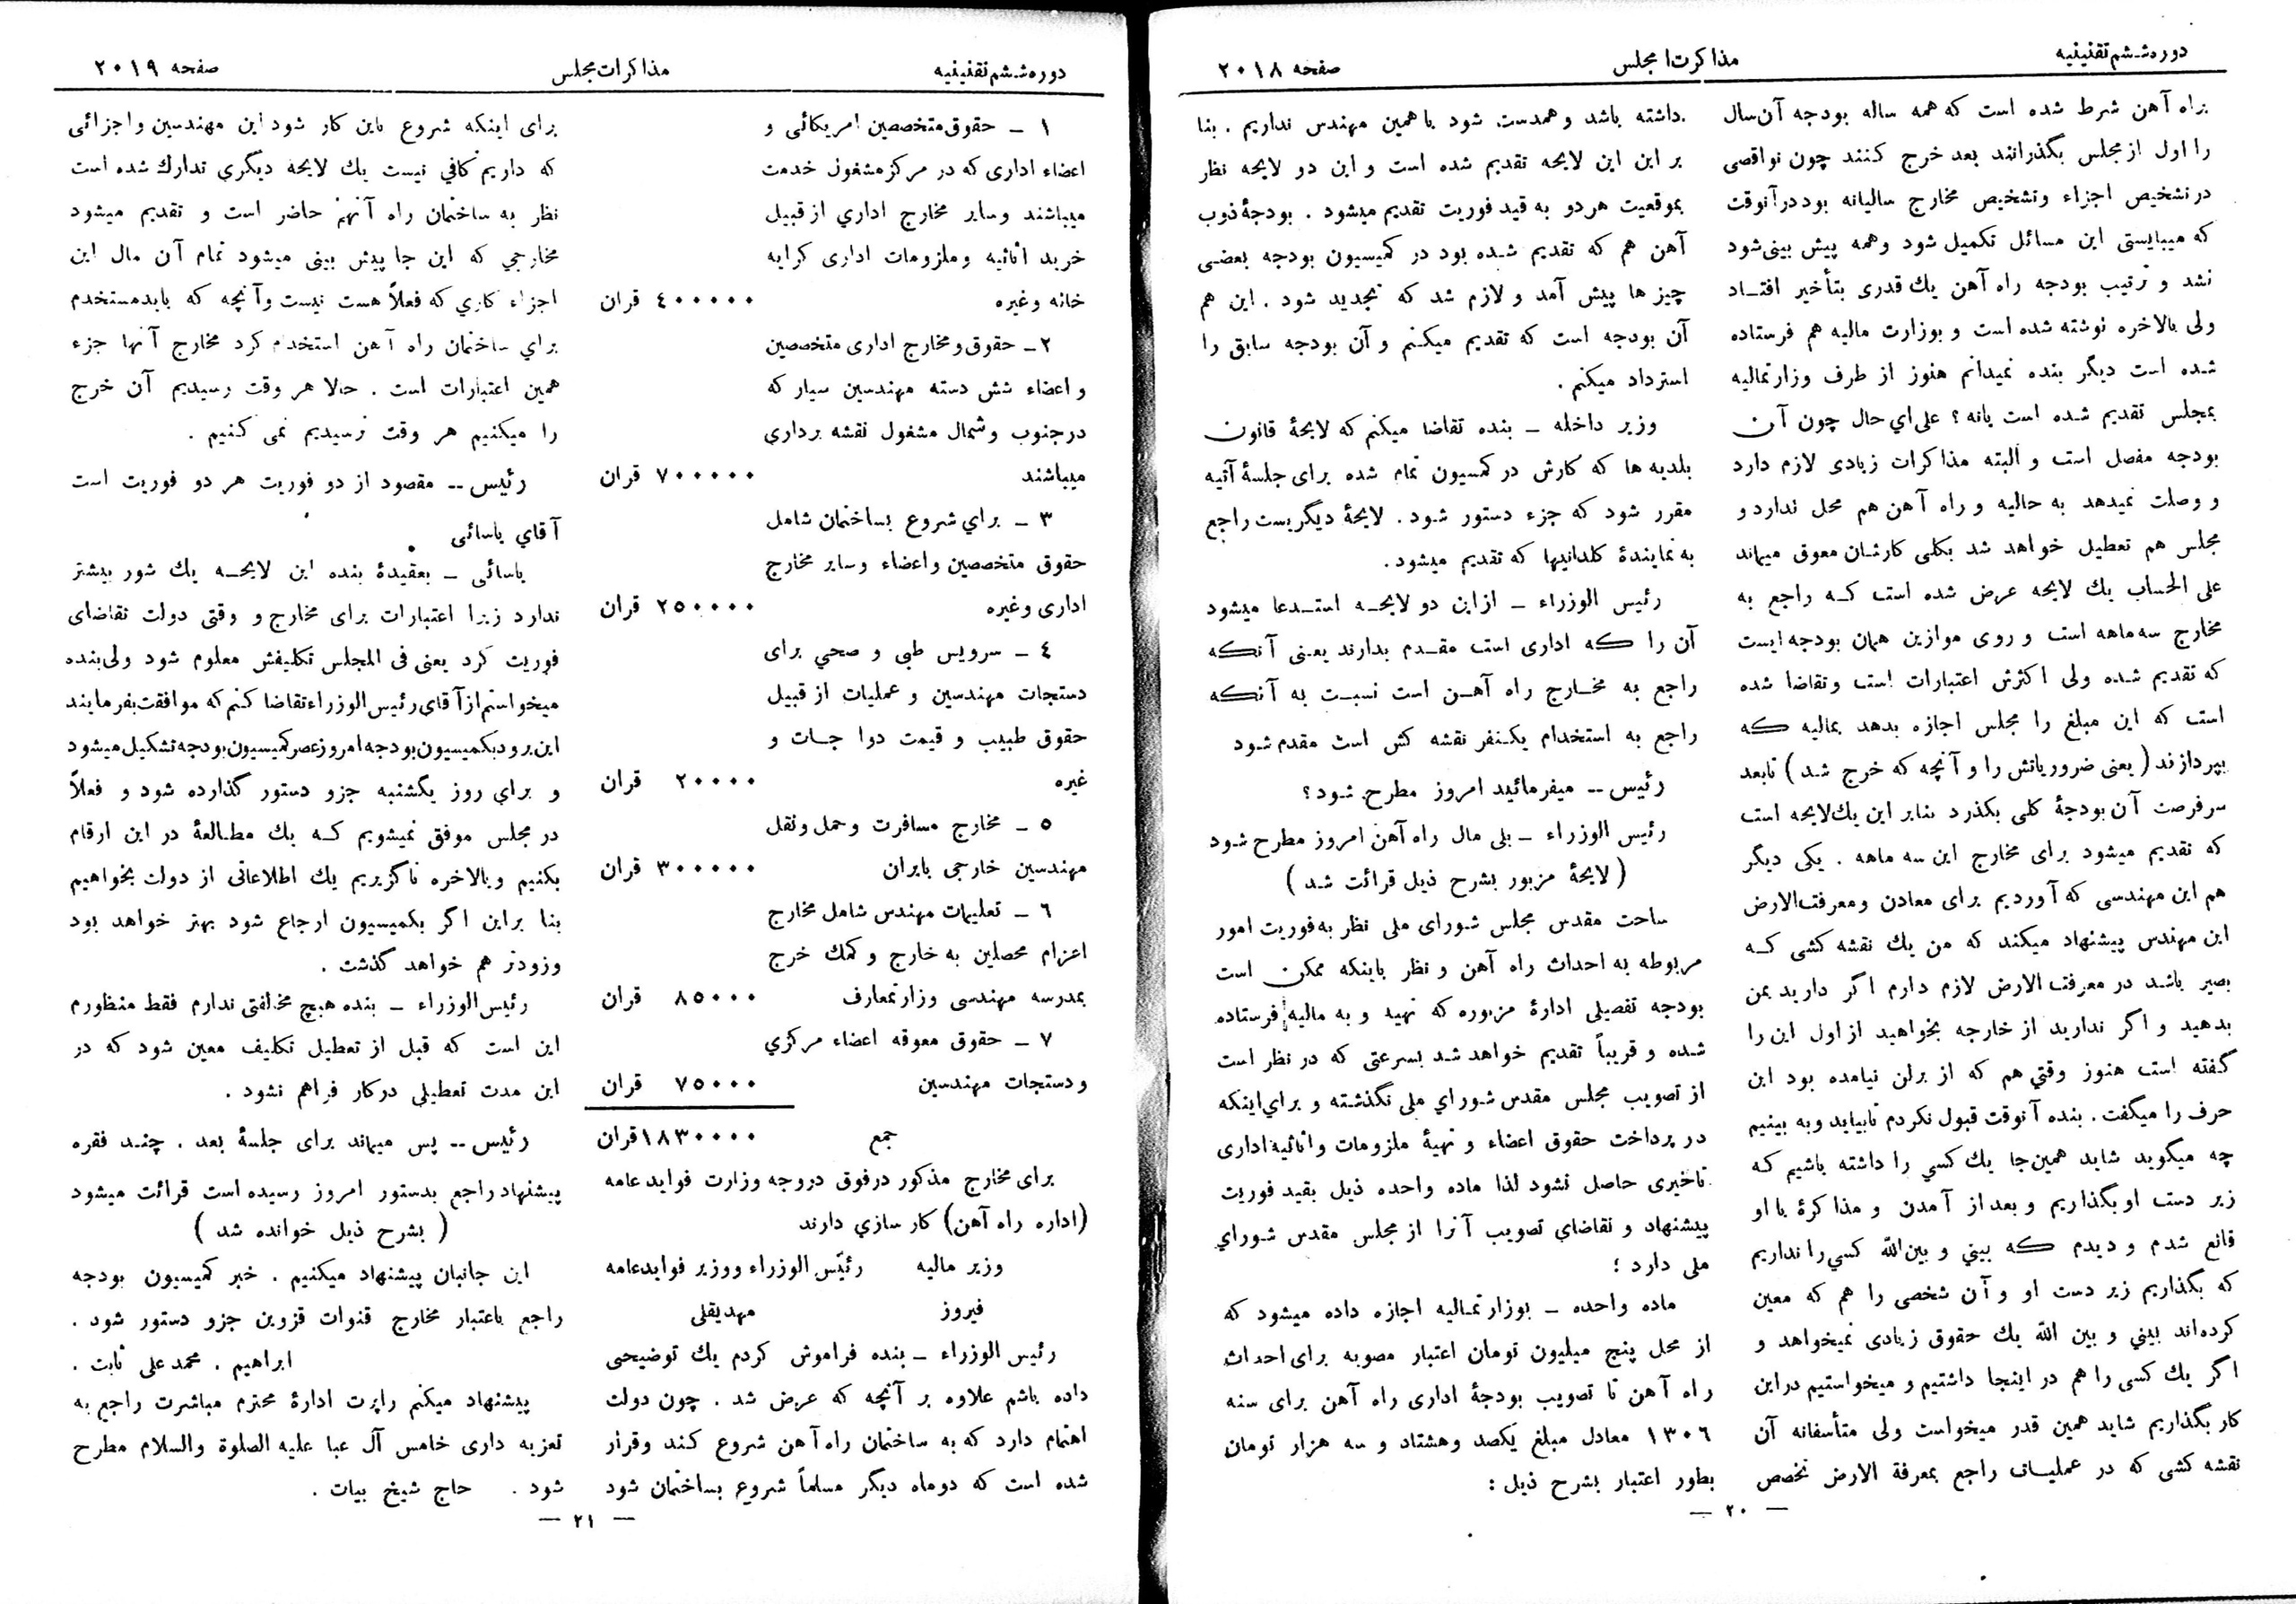 دوره ششم تقنینیه
مذاکرت‌ا مجلس
صفحه ۲۰۱۸
براه آهن شرط شده است که همه ساله بودجه آن سال
را اول از مجلس بگذرانند بعد خرج کنند چون نواقصی
در تشخیص اجزاء و تشخیص مخارج سالیانه بود در آنوقت
که میبایستی این مسائل تکمیل شود و همه پیش بینی شود
نشد و ترتیب بودجه راه آهن یك قدری بتأخیر افتـاد
ولی بالاخره نوشته شده است و بوزارت مالیه هم فرستاده
شده است دیگر بنده نمیدانم هنوز از طرف وزارتمالیه
بمجلس تقدیم شده است یانه ؟ علی‌ای حال چون آن
بودجه مفصل است و البته مذاکرات زیادی لازم دارد
و وصلت نمیدهد به حالیه و راه آهن هم محل ندارد و
مجلس هم تعطیل خواهد شد بکلی کارشان معوق میماند
علی الحساب یك لایحه عرض شده است کـه راجع به
مخارج سه‌ماهه است و روی موازین همان بودجه ایست
که تقدیم شده ولی اکثرش اعتبارات است و تقاضا شده
است که این مبلغ را مجلس اجازه بدهد بمالیه که
بپردازند ( یعنی ضروریاتش را و آنچه که خرج شد ) تابعد
سرفرصت آن بودجهٔ کلی بگذرد بنابر این یك لایحه است
که تقدیم میشود برای مخارج این سه ماهه . یکی دیگر
هم این مهندسی که آوردیم برای معادن و معرفت‌الارض
این مهندس پیشنهاد میکند که من یك نقشه کشی کـه
بصیر باشد در معرفت الارض لازم دارم اگر دارید بمن
بدهید و اگر ندارید از خارجه بخواهید از اول این را
گفته است هنوز وقتی هم که از برلن نیامده بود این
حرف را میگفت . بنده آنوقت قبول نکردم تابیاید و به بینیم
چه میگوید شاید همین‌جا یك کسی را داشته باشیم کـه
زیر دست او بگذاریم و بعد از آمدن و مذاکرهٔ با او
قانع شدم و دیدم که بینی و بین‌الله کسی را نداریم
که بگذاریم زیر دست او و آن شخصی را هم که معین
کرده‌اند بینی و بین الله یك حقوق زیادی نمیخواهد و
اگر یك کسی را هم در اینجا داشتیم و میخواستیم در این
کار بگذاریم شاید همین قدر میخواست ولی متأسفانه آن
نقشه کشی که در عملیات راجع بمعرفة الارض تخصص
داشته باشد و همدست شود با همین مهندس نداریم . بنا
بر این این لایحه تقدیم شده است و این دو لایحه نظر
بموقعیت هردو به قید فوریت تقدیم میشود . بودجهٔ ذوب
آهن هم که تقدیم شده بود در کمیسیون بودجه بعضی
چیز ها پیش آمد و لازم شد که تجدید شود . این هم
آن بودجه است که تقدیم میکنم و آن بودجه سابق را
استرداد میکنم .
وزیر داخله ـ بنده تقاضا میکنم که لایحهٔ قانون
بلدیه ها که کارش در کمسیون تمام شده برای جلسهٔ آتیه
مقرر شود که جزء دستور شود . لایحهٔ دیگریست راجع
به نمایندهٔ کلدانیها که تقدیم میشود .
رئیس الوزراء ـ از این دو لایحـه استـدعا میشود
آن را که اداری است مقـدم بدارند یعنی آنکه
راجع به مخـارج راه آهـن است نسبـت به آنکه
راجع به استخدام یکـنفر نقشه کش است مقدم شود
رئیس ـ میفرمائید امروز مطرح شود ؟
رئیس الوزراء ـ بلی مال راه آهن امروز مطرح شود
( لایحهٔ مزبور بشرح ذیل قرائت شد )
ساحت مقدس مجلس شورای ملی نظر به فوریت امور
مربوطه به احداث راه آهن و نظر باینکه ممکن است
بودجه تفصیلی ادارهٔ مزبوره که تهیه و به مالیه فرستاده
شده و قریباً تقدیم خواهد شد بسرعتی که در نظر است
از تصویب مجلس مقدس شورای ملی نگذشته و برای‌اینکه
در پرداخت حقوق اعضاء و تهیهٔ ملزومات و اثاثیه اداری
تاخیری حاصل نشود لذا ماده واحده ذیل بقید فوریت
پیشنهاد و تقاضای تصویب آنرا از مجلس مقدس شورای
ملی دارد :
ماده واحده ـ بوزارتمالیه اجازه داده میشود که
از محل پنج میلیون تومان اعتبار مصوبه برای احداث
راه آهن تا تصویب بودجهٔ اداری راه آهن برای سنه
۱۳۰۶ معادل مبلغ یکصد وهشتاد و سه هزار تومان
بطور اعتبار بشرح ذیل :
— ۲۰ —
دوره ششم تقنینیه
مذاکرات مجلس
صفحه ۲۰۱۹
۱ ـ حقوق متخصصین امریکائی و
اعضاء اداری که در مرکز مشغول خدمت
میباشند وسایر مخارج اداری از قبیل
خرید اثاثیه و ملزومات اداری کرایه
خانه وغیره ۴۰۰۰۰۰ قران
۲ـ حقوق و مخارج اداری متخصصین
و اعضاء شش دسته مهندسین سیار که
درجنوب وشمال مشغول نقشه برداری
میباشند ۷۰۰۰۰۰ قران
۳ ـ برای شروع بساختمان شامل
حقوق متخصصین و اعضاء وسایر مخارج
اداری وغیره ۲۵۰۰۰۰ قران
۴ ـ سرویس طبی و صحی برای
دستجات مهندسین و عملیات از قبیل
حقوق طبیب و قیمت دوا جـات و
غیره ۲۰۰۰۰ قران
۵ ـ مخارج مسافرت وحمل ونقل
مهندسین خارجی بایران ۳۰۰۰۰۰ قران
۶ ـ تعلیمات مهندس شامل مخارج
اعزام محصلین به خارج و کمك خرج
بمدرسه مهندسی وزارتمعارف ۸۵۰۰۰ قران
۷ ـ حقوق معوقه اعضاء مرکزی
و دستجات مهندسین ۷۵۰۰۰ قران
جمع ۱۸۳۰۰۰۰قران
برای مخارج مذکور درفوق دروجه وزارت فوایدعامه
(اداره راه آهن) کار سازی دارند
وزیر مالیه رئیس الوزراء ووزیر فوایدعامه
فیروز مهدیقلی
رئیس الوزراء ـ بنده فراموش کردم یك توضیحی
داده باشم علاوه بر آنچه که عرض شد . چون دولت
اهتمام دارد که به ساختمان راه آهن شروع کند وقرار
شده است که دوماه دیگر مسلماً شروع بساختمان شود
برای اینکه شروع باین کار شود این مهندسین و اجزائی
که داریم کافی نیست یك لایحه دیگری تدارك شده است
نظر به ساختمان راه آهن حاضر است و تقدیم میشود
مخارجی که این جا پیش بینی میشود تمام آن مال این
اجزاء کاری که فعلاً هست نیست و آنچه که باید مستخدم
برای ساختمان راه آهن استخدام کرد مخارج آنها جزء
همین اعتبارات است . حالا هر وقت رسیدیم آن خرج
را میکنیم هر وقت نرسیدیم نمی کنیم .
رئیس ـ مقصود از دو فوریت هر دو فوریت است
آقای یاسائی
یاسائی ـ بعقیدهٔ بنده این لایحـه یك شور بیشتر
ندارد زیرا اعتبارات برای مخارج و وقتی دولت تقاضای
فوریت کرد یعنی فی المجلس تکلیفش معلوم شود ولی بنده
میخواستم از آقای رئیس الوزراء تقاضا کنم که موافقت بفرمایند
این برود بکمیسیون بودجه امروز عصر کمیسیون بودجه تشکیل میشود
و برای روز یگشنبه جزو دستور گذارده شود و فعلاً
در مجلس موفق نمیشویم کـه یك مطالعهٔ در این ارقام
بکنیم و بالاخره ناگزیریم یك اطلاعاتی از دولت بخواهیم
بنا براین اگر بکمیسیون ارجاع شود بهتر خواهد بود
وزودتر هم خواهد گذشت .
رئیس الوزراء ـ بنده هیچ مخالفتی ندارم فقط منظورم
این است که قبل از تعطیل تکلیف معین شود که در
این مدت تعطیلی درکار فراهم نشود .
رئیس ـ پس میماند برای جلسهٔ بعد . چند فقره
پیشنهاد راجع بدستور امروز رسیده است قرائت میشود
( بشرح ذیل خوانده شد )
این جانبان پیشنهاد میکنیم . خبر کمیسیون بودجه
راجع باعتبار مخارج قنوات قزوین جزو دستور شود .
ابراهیم . محمد علی ثابت .
پیشنهاد میکنم راپرت ادارهٔ محترم مباشرت راجع به
تعزیه داری خامس آل عبا علیه الصلوة والسلام مطرح
شود . حاج شیخ بیات .
— ۲۱ —